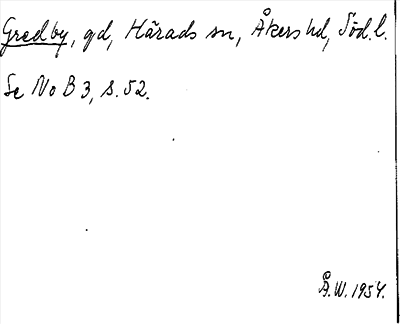 Gredby, gd, Härads sn, Åkers hd, Söd.l.
Se No B 3, s. 52.
Å.W. 1954.